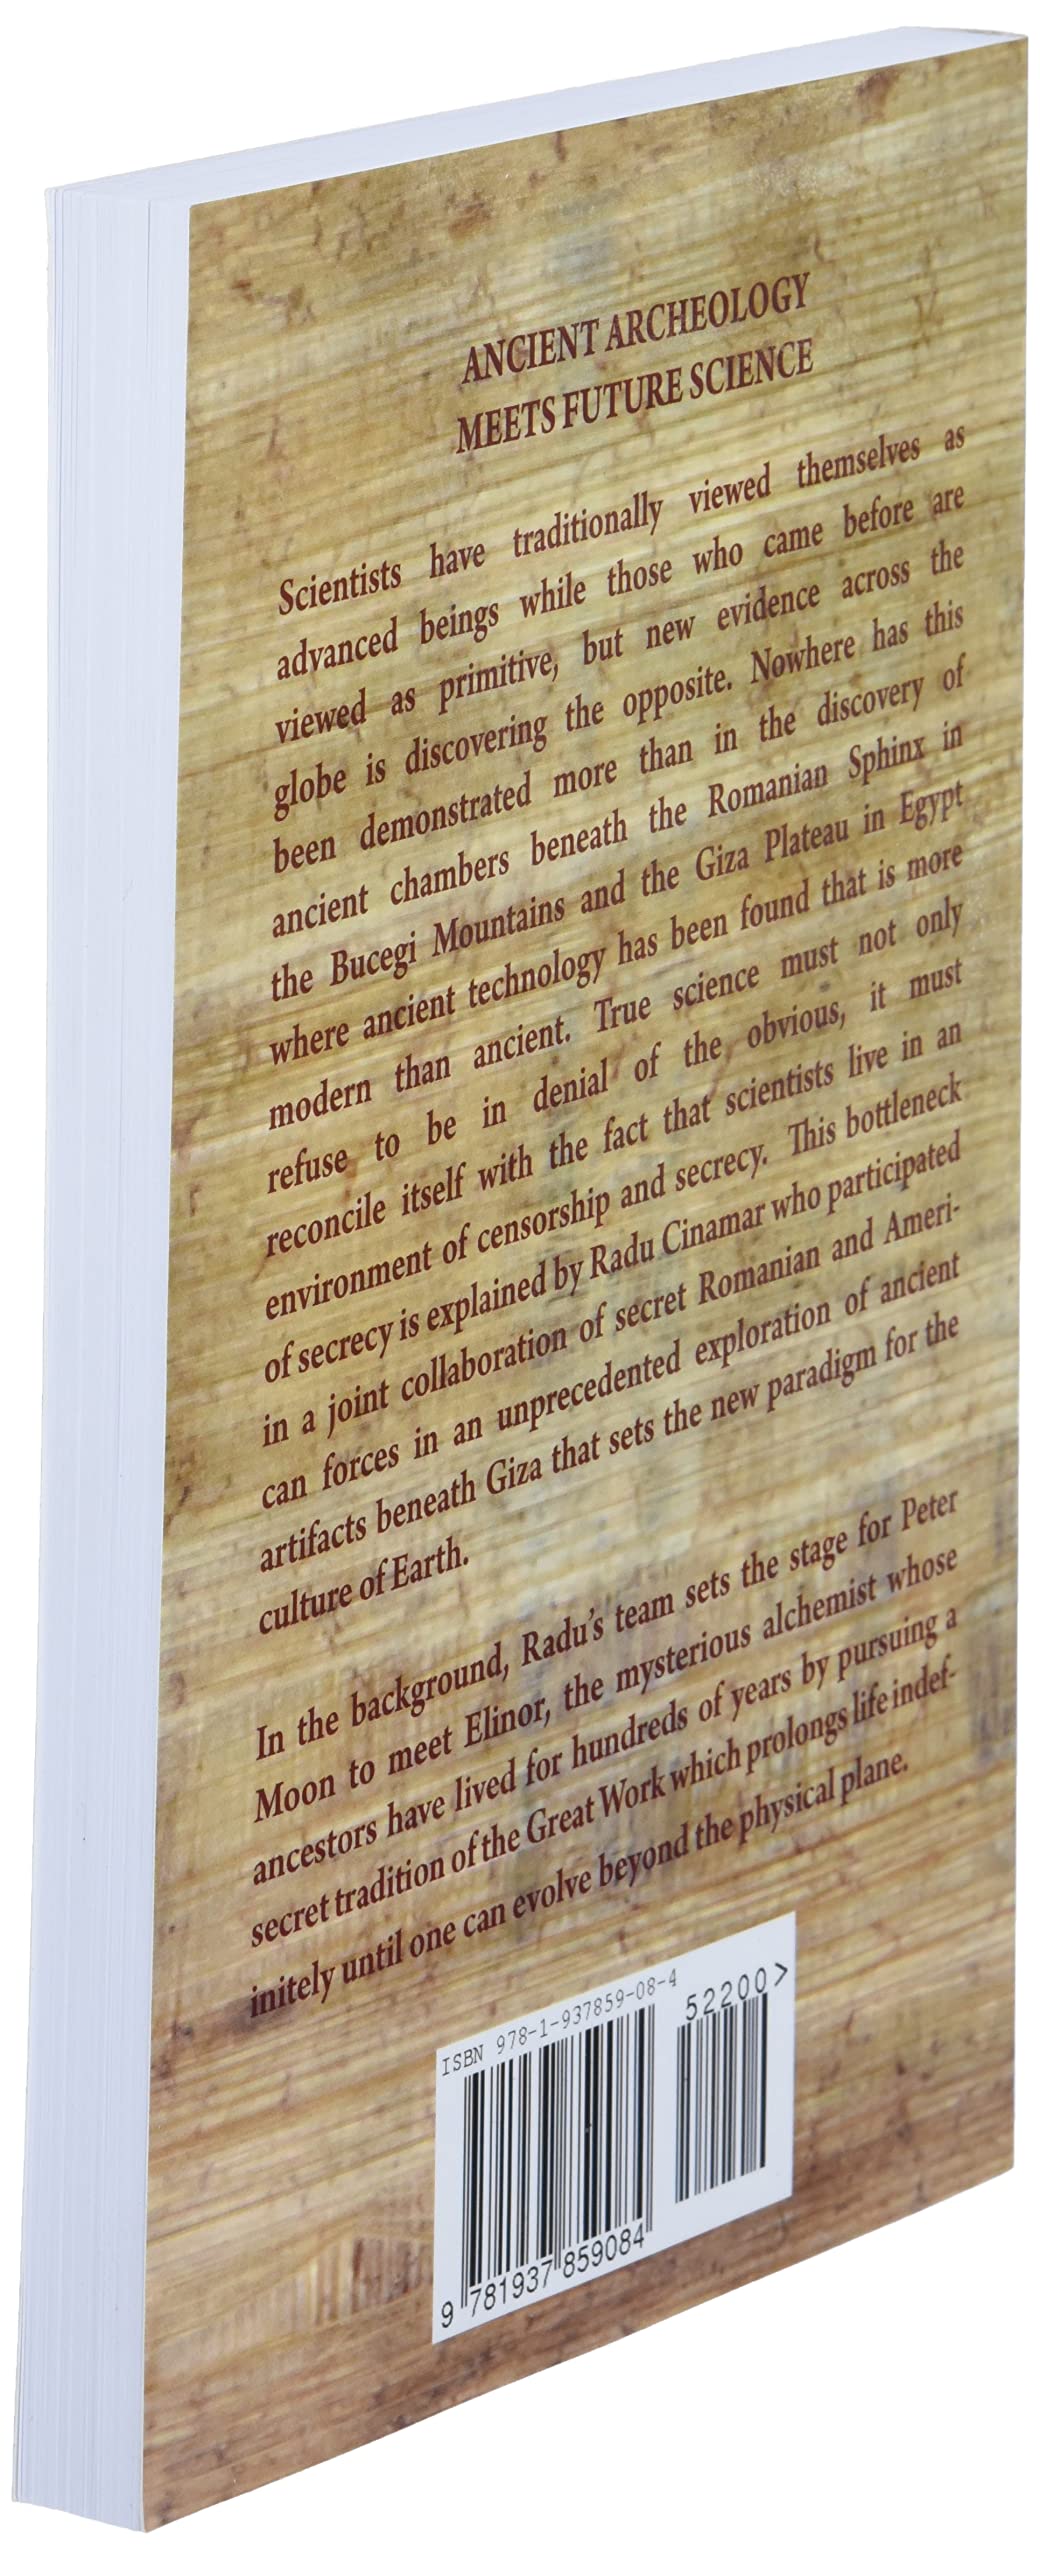 ANCIENT ARCHEOLOGY
MEETS FUTURE SCIENCE
Scientists have traditionally viewed themselves as
advanced beings while those who came before are
viewed as primitive, but new evidence across the
globe is discovering the opposite. Nowhere has this
been demonstrated more than in the discovery of
ancient chambers beneath the Romanian Sphinx in
the Bucegi Mountains and the Giza Plateau in Egypt
where ancient technology has been found that is more
modern than ancient. True science must not only
refuse to be in denial of the obvious, it must
reconcile itself with the fact that scientists live in an
environment of censorship and secrecy. This bottleneck
of secrecy is explained by Radu Cinamar who participated
in a joint collaboration of secret Romanian and Ameri-
can forces in an unprecedented exploration of ancient
artifacts beneath Giza that sets the new paradigm for the
culture of Earth.
In the background, Radu's team sets the stage for Peter
Moon to meet Elinor, the mysterious alchemist whose
ancestors have lived for hundreds of years by pursuing a
secret tradition of the Great Work which prolongs life indef-
initely until one can evolve beyond the physical plane.
ISBN 978-1-937859-08-4
52200>
9 781937 859084